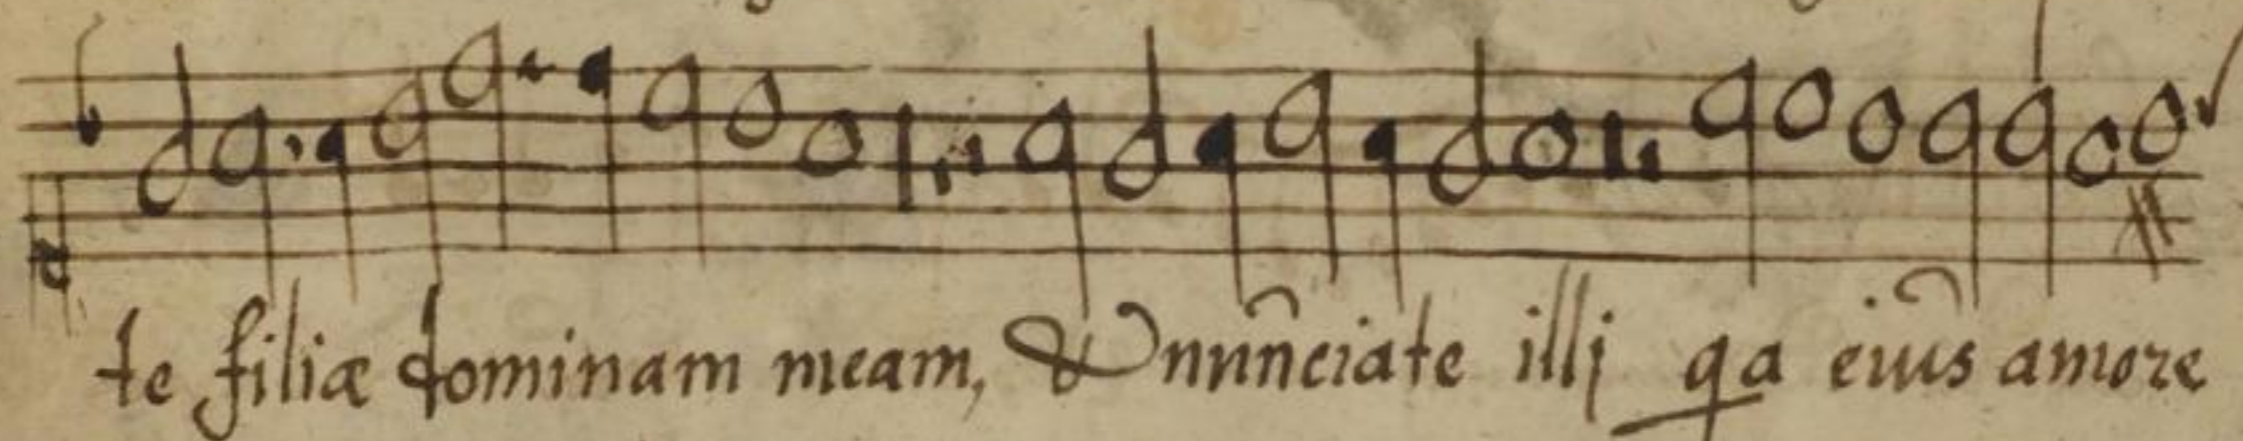 te filiæ dominam meam, & nnūciate illj qa eius amore